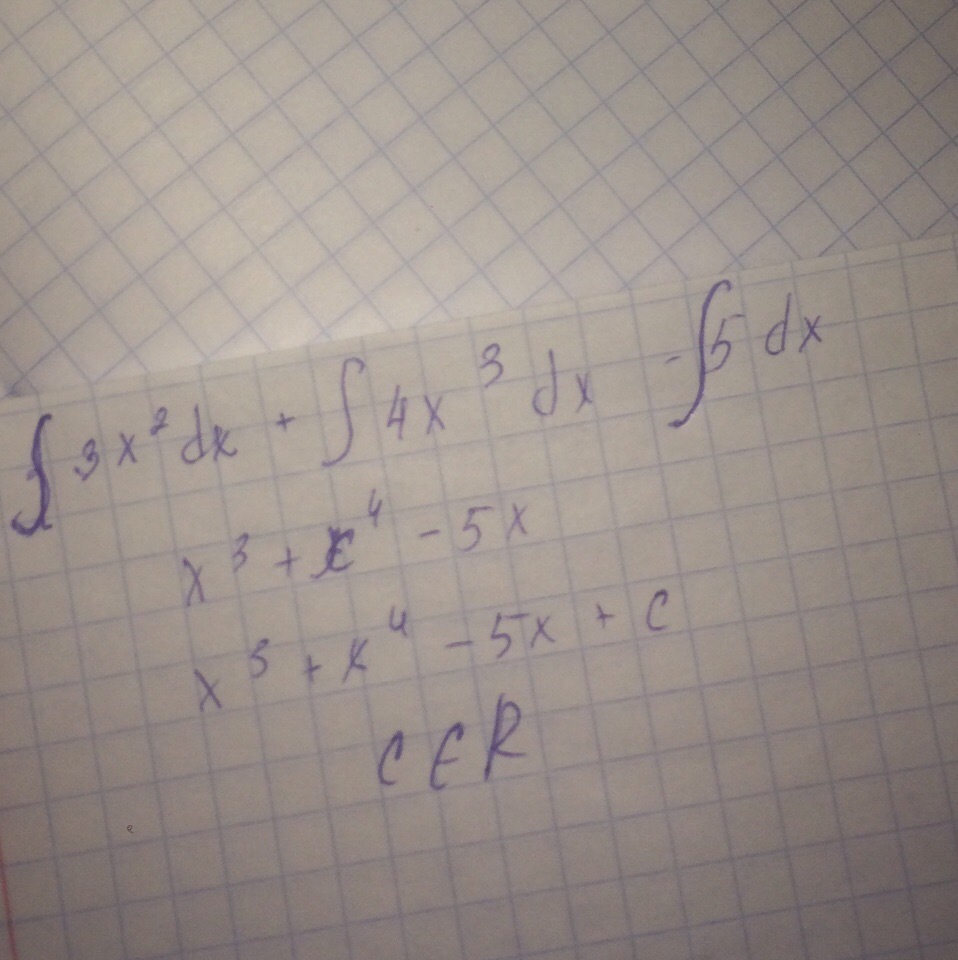 ∫3x²dx + ∫4x³dx - ∫5dx
x³ + x⁴ - 5x
x³ + x⁴ - 5x + C
C ∈ R